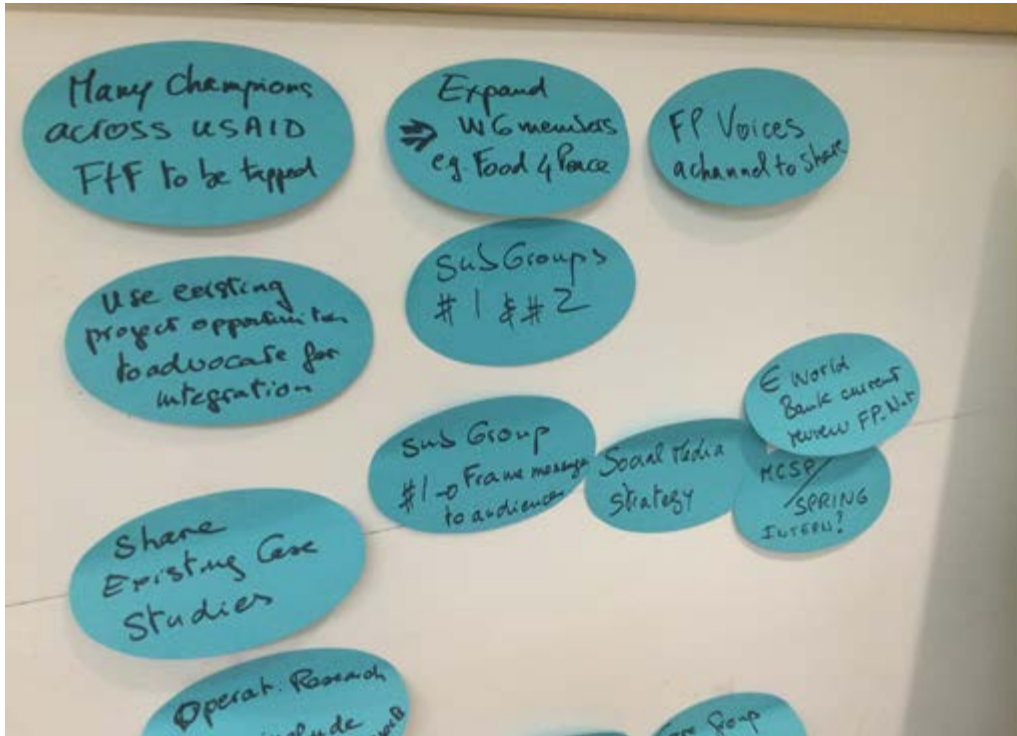 Many Champions
across USAID
FtF to be tapped
Expand
⇒ WG members
eg. Food 4 Peace
FP Voices
a channel to share
Use existing
project opportunities
to advocate for
integration
SubGroups
#1 & #2
Sub Group
#1 → Frame message
to audiences
Social Media
strategy
€ World
Bank current
review FP-Nut
MCSP/
SPRING
INTERN?
Share
Existing Case
Studies
Operat. Research
include
Group